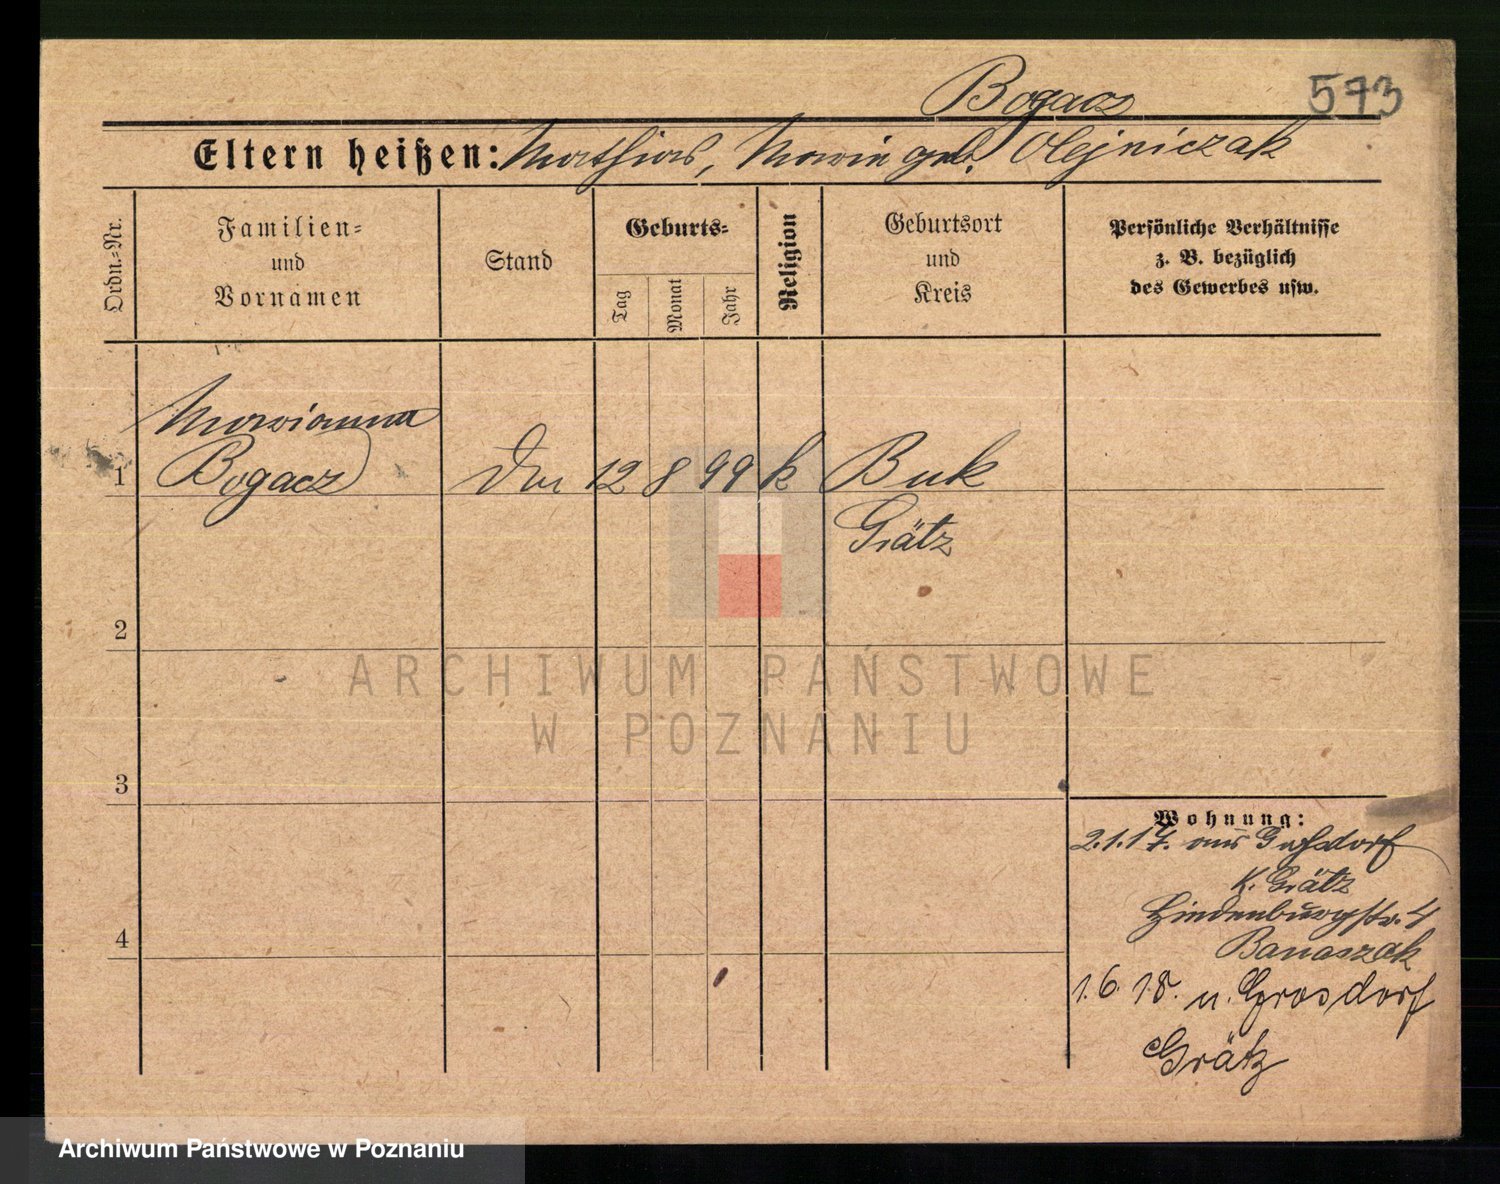 Bogacz
573
Eltern heißen: Mathias, Marie geb. Olejniczak
Ordn.-Nr.
Familien-
und
Vornamen
Stand
Geburts-
Tag
Monat
Jahr
Religion
Geburtsort
und
Kreis
Persönliche Verhältnisse
z. B. bezüglich
des Gewerbes usw.
Marianna
1 Bogacz 12 8 99 k Buk
Grätz
2
3
4
Wohnung:
2.1.17. aus
K. Grätz
Hindenburgstr. 4
Banaszak
1.6.18. n. Grosdorf
Grätz
ARCHIWUM PAŃSTWOWE
W POZNANIU
Archiwum Państwowe w Poznaniu